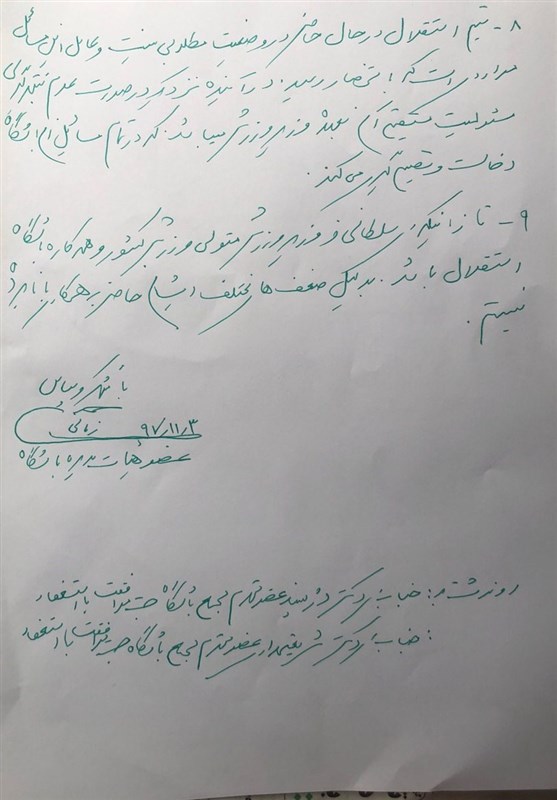 ۸- تیم استقلال در حال حاضر در وضعیت مطلوبی نیست و عامل این مسائل
مواردی است که به استحضار رسید. در آینده نزدیک در صورت عدم نتیجه‌گیری
مسئولیت مستقیم آن بعهده وزیر ورزش میباشد. که در تمام مسائل ریز باشگاه
دخالت و تصمیم‌گیری می‌کند.
۹- تا زمانیکه سلطانی‌فر وزیر ورزش متولی ورزش کشور و همه کاره باشگاه
استقلال باشد. بدلیل ضعف‌های مختلف ایشان حاضر به همکاری با نامبرده
نیستم.
با تشکر و سپاس
زمانی ۹۷/۱۱/۳
عضو هیات مدیره باشگاه
رونوشت به: جناب آقای دکتر عضو محترم مجمع باشگاه جهت موافقت با استعفاء
: جناب آقای دکتر شریعتمداری عضو محترم مجمع باشگاه جهت موافقت با استعفاء